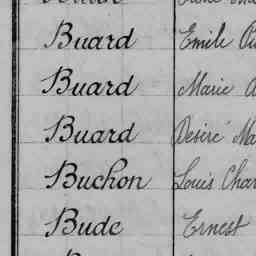 Buard Emile
Buard Marie
Buard Désiré
Buchon Louis
Bude Ernest